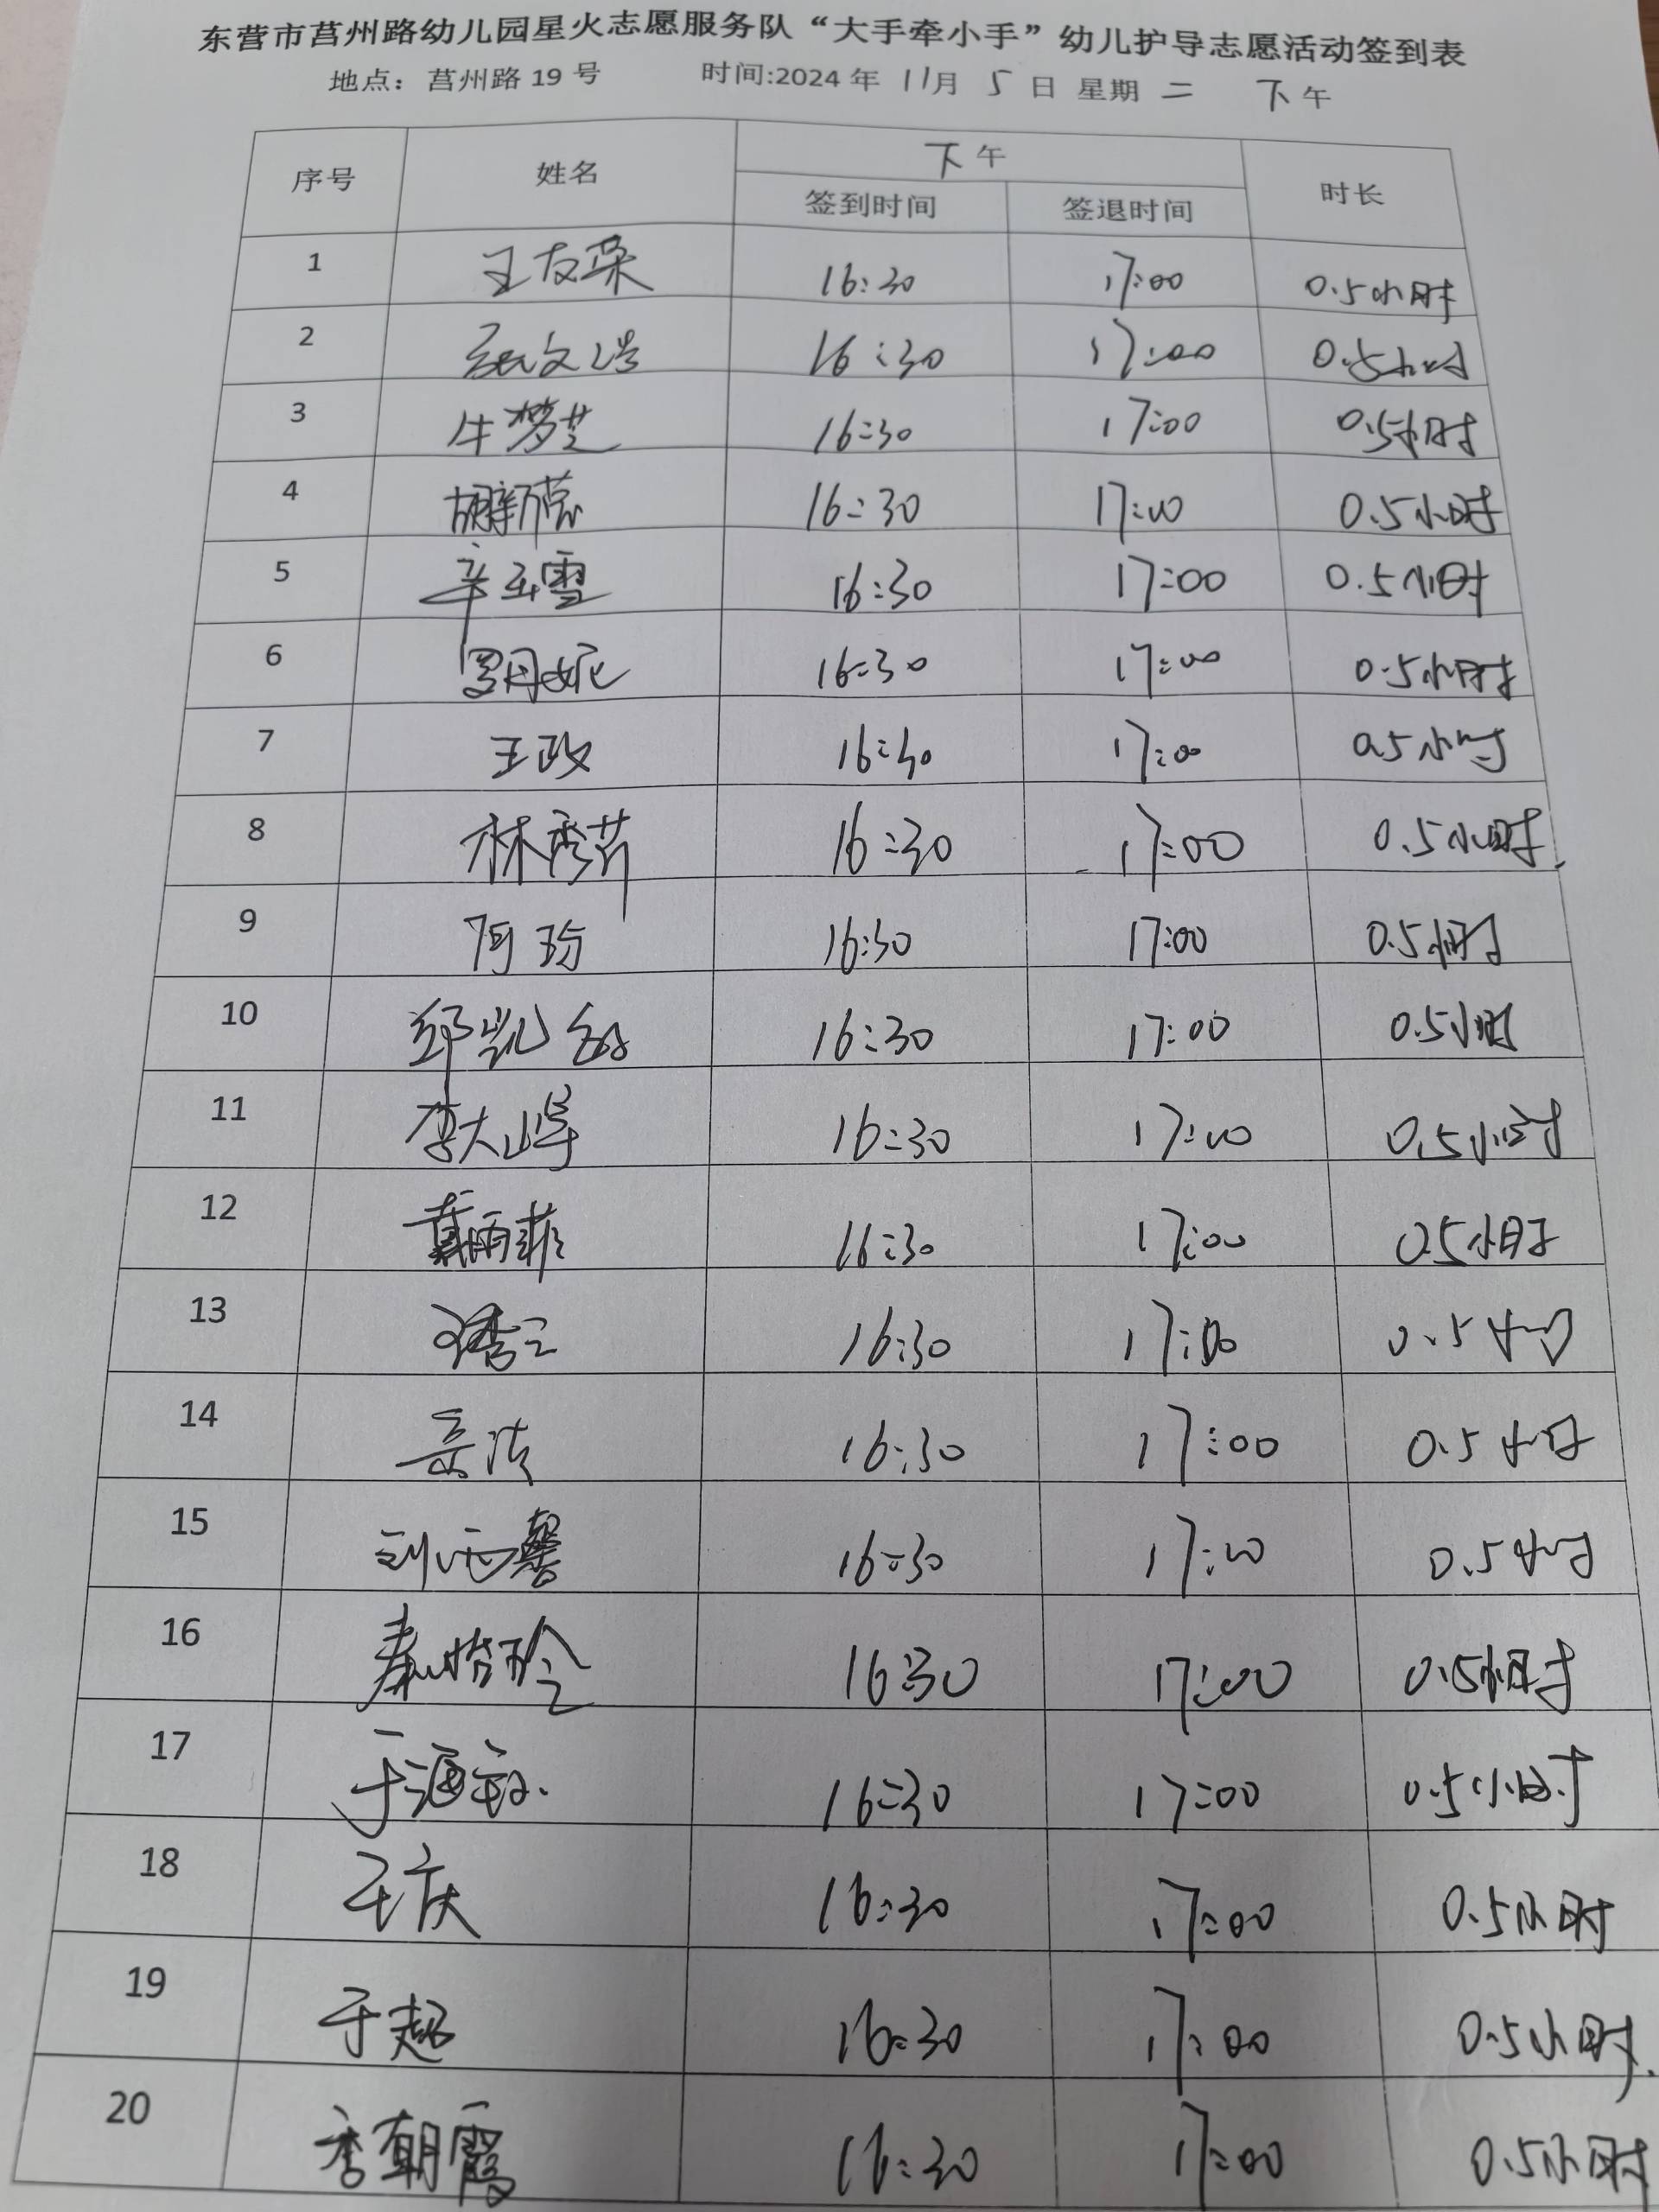 东营市莒州路幼儿园星火志愿服务队“大手牵小手”幼儿护导志愿活动签到表
地点：莒州路 19 号 时间:2024 年 11月 5 日 星期 二 下午
序号 姓名 下午 时长
签到时间 签退时间
1 王友荣 16:30 17:00 0.5小时
2 16:30 17:00 0.5小时
3 牛梦芝 16:30 17:00 0.5小时
4 胡新蕊 16:30 17:00 0.5小时
5 辛玉雪 16:30 17:00 0.5小时
6 罗丹妮 16:30 17:00 0.5小时
7 王政 16:30 17:00 0.5小时
8 林秀芹 16:30 17:00 0.5小时
9 16:30 17:00 0.5小时
10 邱凯 16:30 17:00 0.5小时
11 李大 16:30 17:00 0.5小时
12 雨菲 16:30 17:00 0.5小时
13 16:30 17:00 0.5小时
14 岳洁 16:30 17:00 0.5小时
15 刘 馨 16:30 17:00 0.5小时
16 秦 玲 16:30 17:00 0.5小时
17 于海 16:30 17:00 0.5小时
18 王庆 16:30 17:00 0.5小时
19 于超 16:30 17:00 0.5小时
20 李朝霞 16:30 17:00 0.5小时